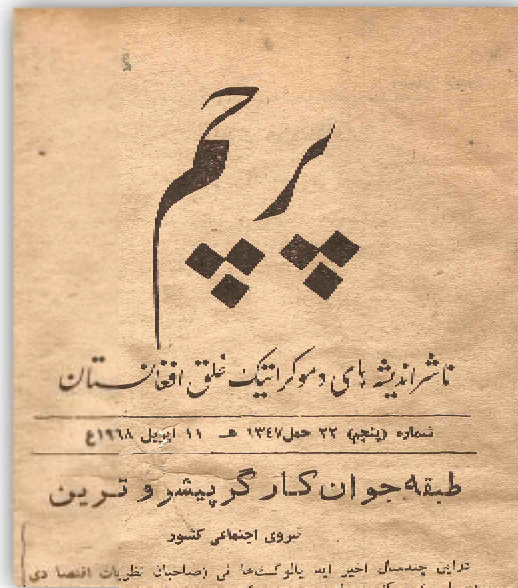 پرچم
ناشر اندیشه های دموکراتیک خلق افغانستان
شماره (پنجم) ۲۲ حمل ۱۳٤۷ هـ ۱۱ اپریل ۱۹٦۸ع
طبقه جوان کارگر پیشرو ترین
نیروی اجتماعی کشور
دراین چندسال اخیر اید یالوگ‌ت‌ها ئی (صاحبان نظریات اقتصا دی